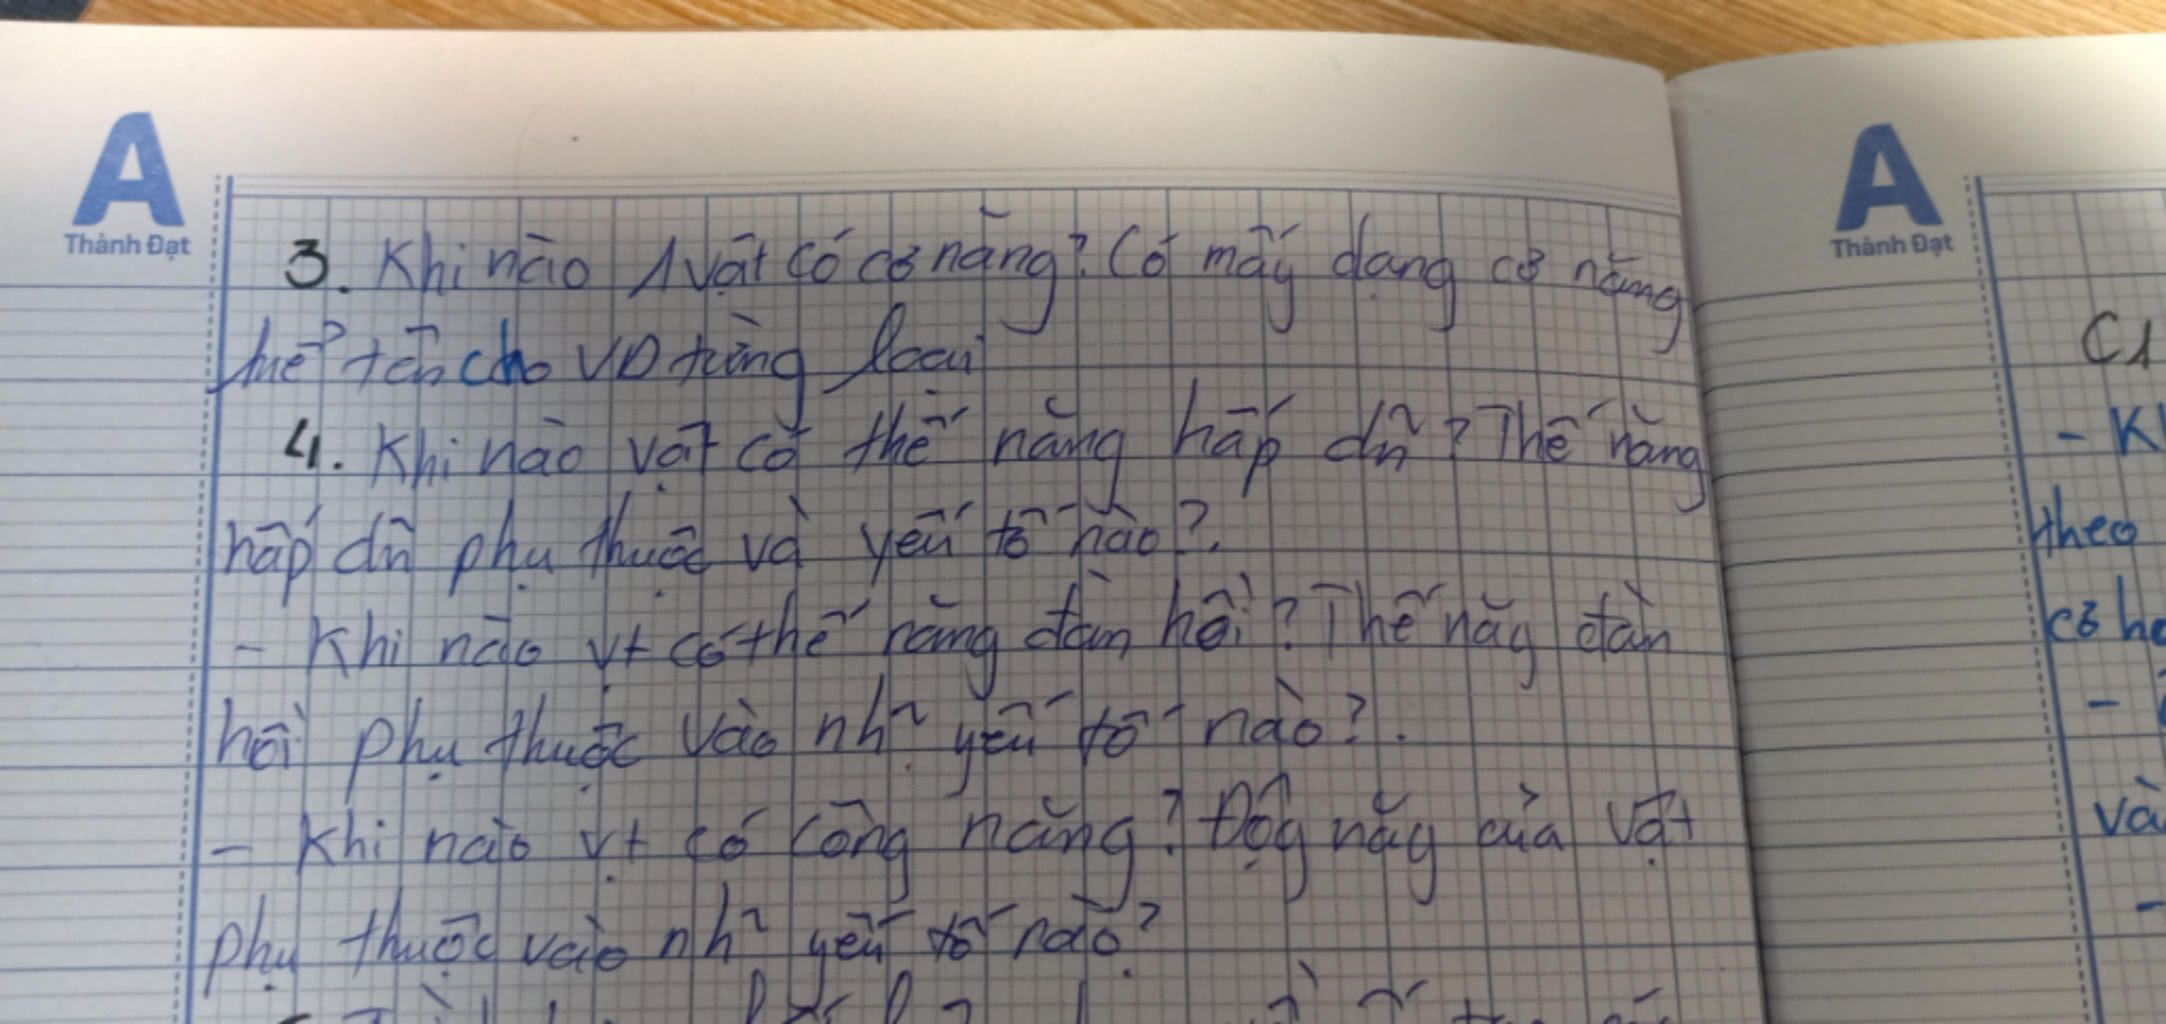 A
Thành Đạt
3. Khi nào 1 vật có cơ năng? Có mấy dạng cơ năng
kể tên cho VD từng loại
4. Khi nào vật có thế năng hấp dñ? Thế năng
hấp dñ phụ thuộc và yếu tố nào?.
- Khi nào vật có thế năng đàn hồi? Thế năg đàn
hồi phụ thuộc vào nh~ yếu tố nào?.
- Khi nào vật có công năng? Độg năg của vật
phụ thuộc vào nh~ yếu tố nào?
A
Thành Đạt
C1
- K
theo
cơ họ
-
và
-